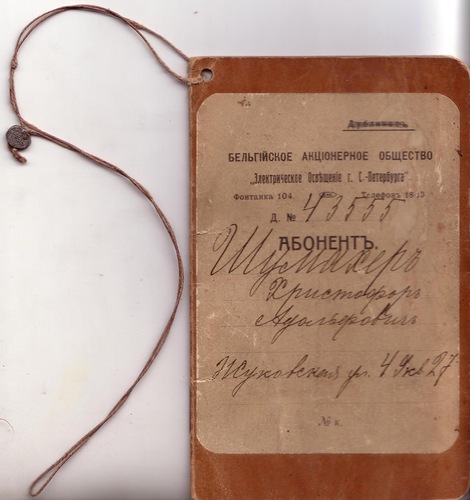 Дубликатъ
БЕЛЬГІЙСКОЕ АКЦІОНЕРНОЕ ОБЩЕСТВО
„Электрическое Освѣщеніе г. С.-Петербурга“
Фонтанка 104. Телефонъ
Д. № 43555
АБОНЕНТЪ.
Шумахеръ
Христофоръ
Адольфовичъ
Жуковская ул. 49 кв 27
№ к.